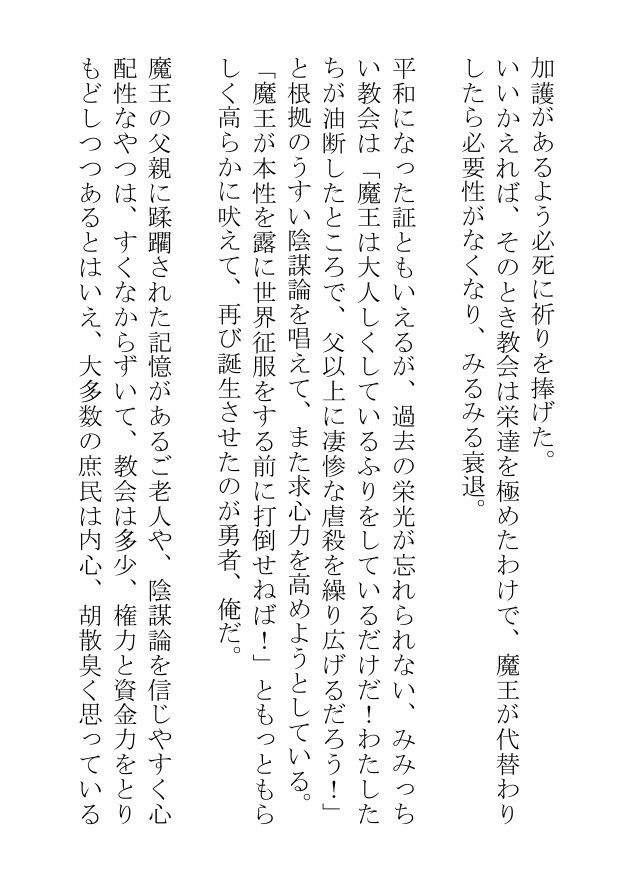 加護があるよう必死に祈りを捧げた。
いいかえれば、そのとき教会は栄達を極めたわけで、魔王が代替わり
したら必要性がなくなり、みるみる衰退。
平和になった証ともいえるが、過去の栄光が忘れられない、みみっち
い教会は「魔王は大人しくしているふりをしているだけだ！わたした
ちが油断したところで、父以上に凄惨な虐殺を繰り広げるだろう！」
と根拠のうすい陰謀論を唱えて、また求心力を高めようとしている。
「魔王が本性を露に世界征服をする前に打倒せねば！」ともっともら
しく高らかに吠えて、再び誕生させたのが勇者、俺だ。
魔王の父親に蹂躙された記憶があるご老人や、陰謀論を信じやすく心
配性なやつは、すくなからずいて、教会は多少、権力と資金力をとり
もどしつつあるとはいえ、大多数の庶民は内心、胡散臭く思っている